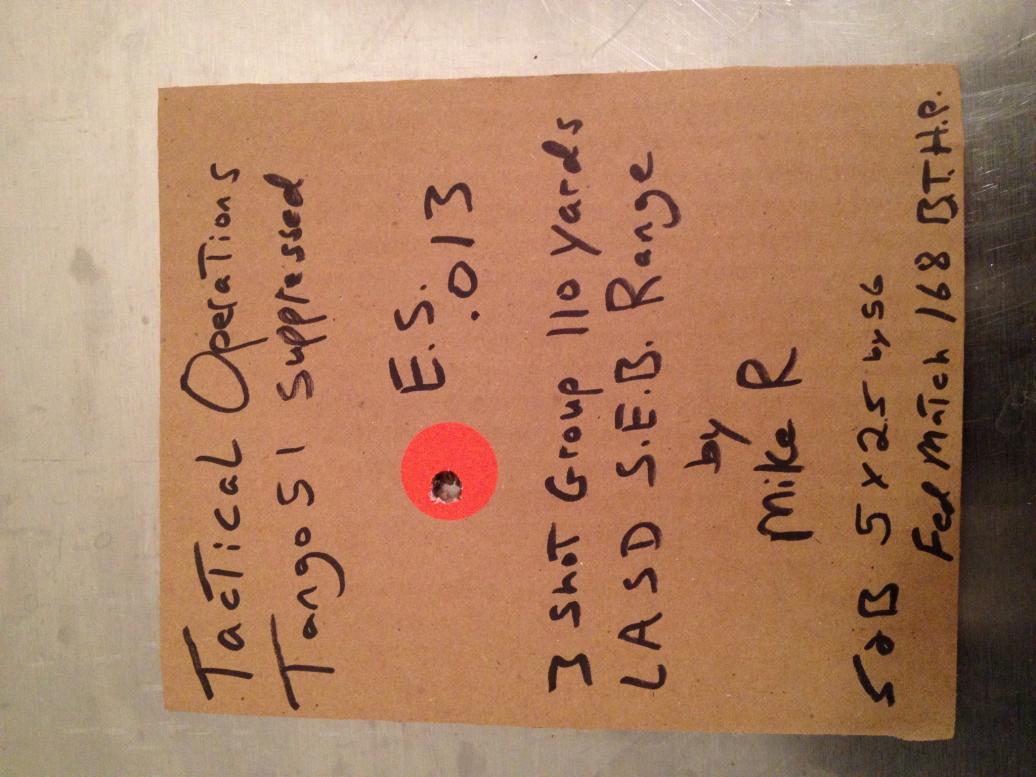 Tactical Operations
Tango 51 Suppressed
E.S.
.013
3 shot Group 110 yards
LASD S.E.B. Range
by
Mike R
S&B 5x25 by 56
Fed Match 168 B.T.H.P.